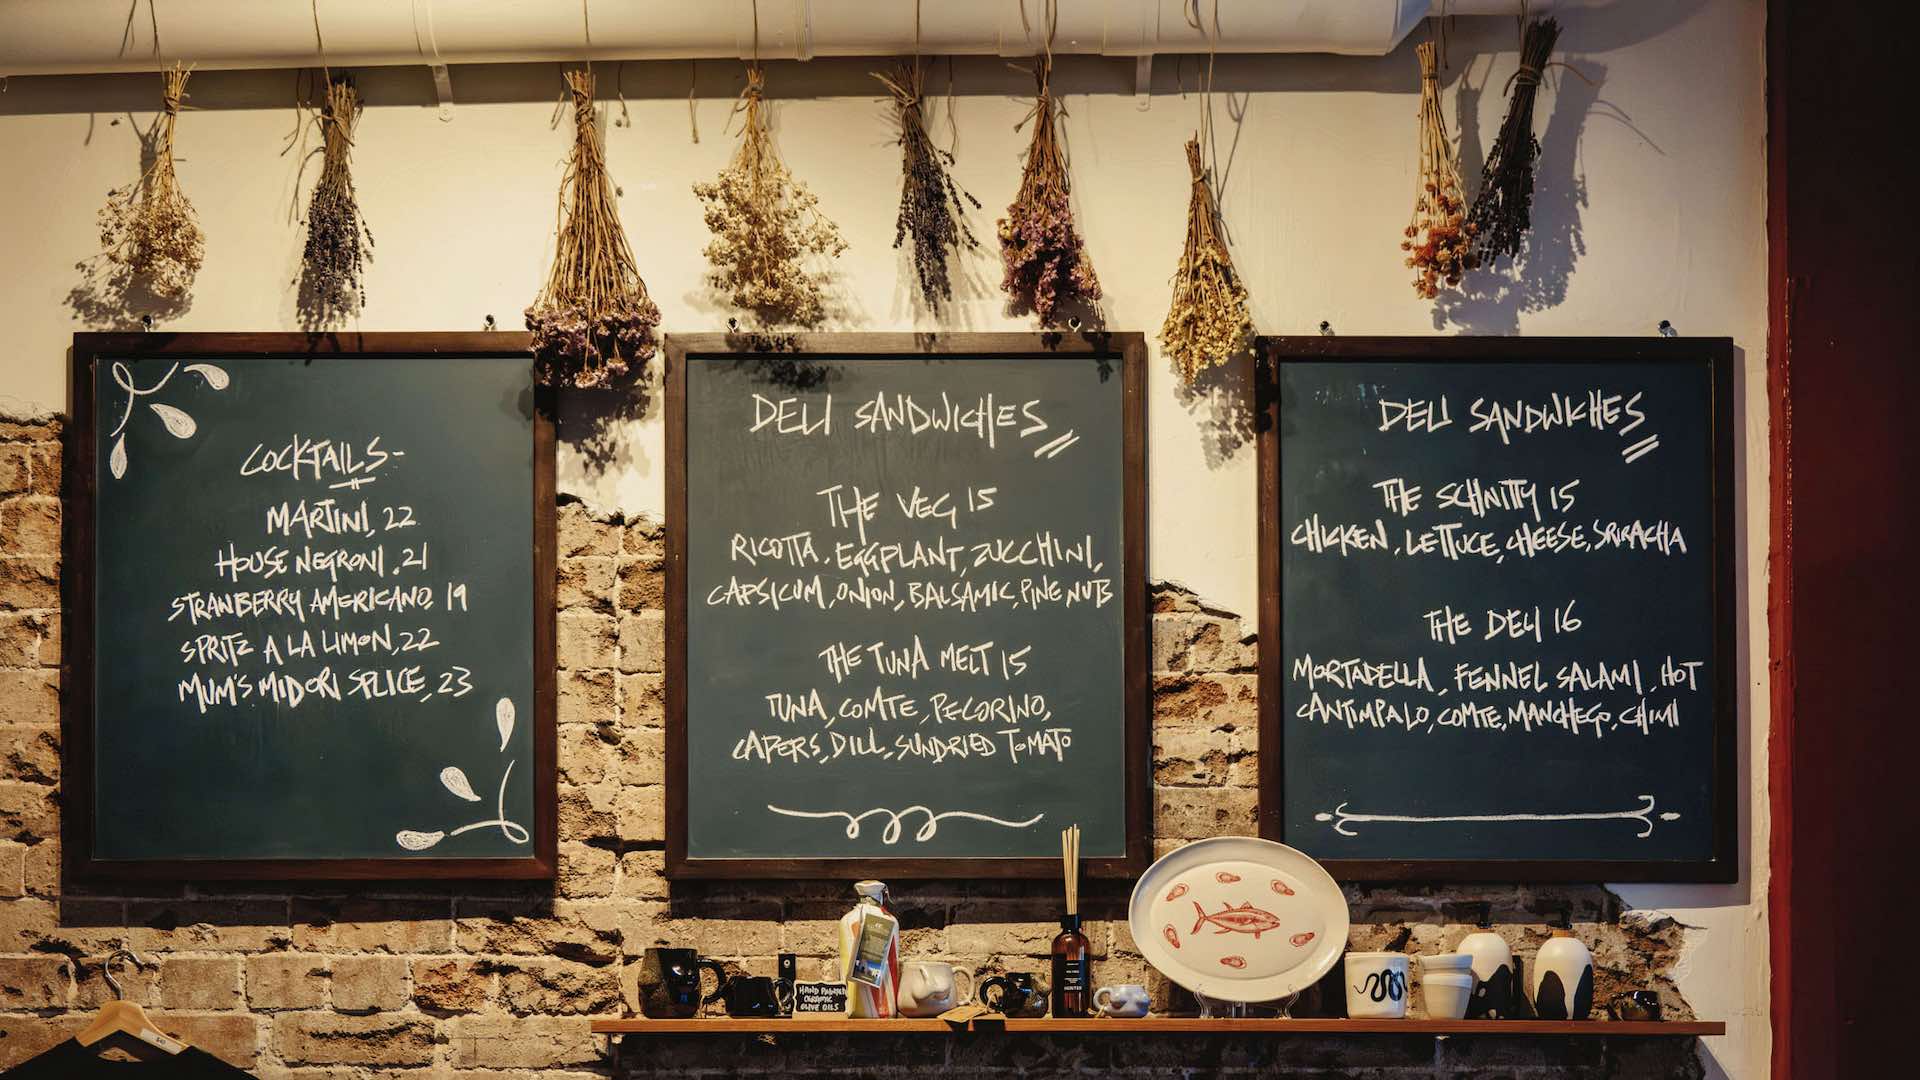 COCKTAILS-
MARTINI, 22
HOUSE NEGRONI, 21
STRAWBERRY AMERICANO, 19
SPRITZ A LA LIMON, 22
MUM'S MIDORI SPLICE, 23
DELI SANDWICHES
THE VEG 15
RICOTTA, EGGPLANT, ZUCCHINI,
CAPSICUM, ONION, BALSAMIC, PINE NUTS
THE TUNA MELT 15
TUNA, COMTE, PECORINO,
CAPERS, DILL, SUNDRIED TOMATO
DELI SANDWICHES
THE SCHNITTY 15
CHICKEN, LETTUCE, CHEESE, SRIRACHA
THE DELI 16
MORTADELLA, FENNEL SALAMI, HOT
CANTIMPALO, COMTE, MANCHEGO, CHIMI
HAND PAINTED
CERAMIC
OLIVE OILS
HUNTER